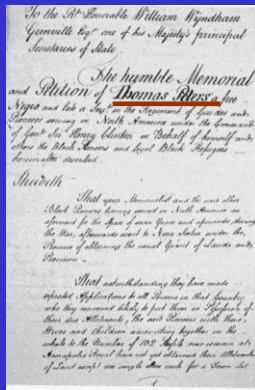 To the Rt. Honorable William Wyndham
Grenville Esqr. one of his Majesty's principal
Secretaries of State
The humble Memorial
and Petition of Thomas Peters a free
Negro and late a Serjt. in the Regiment of Guides and
Pioneers serving in North America under the Command
of Genl. Sir Henry Clinton on Behalf of himself and
others the Black Pioneers and loyal Black Refugees
hereinafter described
Sheweth
That your Memorialist and the said other
Black Pioneers having served in North America as
aforesaid for the space of seven Years and upwards, during
the War, afterwards went to Nova Scotia under the
Promise of obtaining the usual Grant of Lands and
Provision.
That notwithstanding they have made
repeated Applications to all Persons in that Country
who they conceived likely to put them in Possession of
their due Allotments, the said Pioneers with their
Wives and Children amounting together in the
whole to the Number of 102 People now remain at
Annapolis Royal have not yet obtained their Allotments
of Land except one single Acre each for a Town Lot